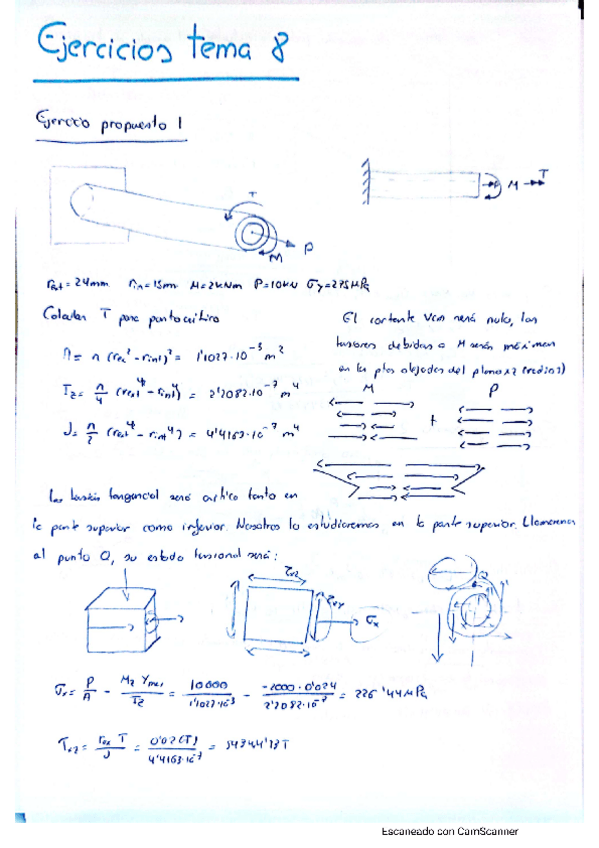 Ejercicios tema 8
Ejercicio propuesto 1
T
P
M
M
T
rext = 24mm rin = 15mm M = 2kNm P = 10kN σy = 275MPa
Calcular T para punto crítico
A = π (rext² - rint²)² = 1'1027·10⁻³ m²
Iz = π/4 (rext⁴ - rint⁴) = 2'2082·10⁻⁷ m⁴
J = π/2 (rext⁴ - rint⁴) = 4'4163·10⁻⁷ m⁴
El cortante Vcm será nulo, las
tensiones debidas a M serán máximas
en los ptos alejados del plano xz (
M P
+
La tensión tangencial será crítica tanto en
la parte superior como inferior. Nosotros lo estudiaremos en la parte superior. Llamaremos
al punto Q, su estado tensional será:
τxz
τxy
σx
Q
σx = P/A - Mz Ymax/Iz = 10000/1'1027·10⁻³ - -2000·0'024/2'2082·10⁻⁷ = 226'44MPa
τxz = rex T/J = /4'4163·10⁻⁷ = 54344'13T
Escaneado con CamScanner